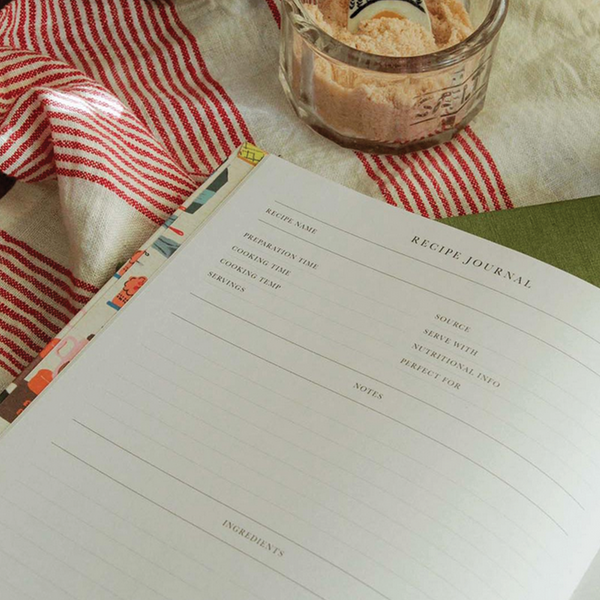 RECIPE JOURNAL
RECIPE NAME
PREPARATION TIME
COOKING TIME
COOKING TEMP
SERVINGS
SOURCE
SERVE WITH
NUTRITIONAL INFO
PERFECT FOR
NOTES
INGREDIENTS
SALT